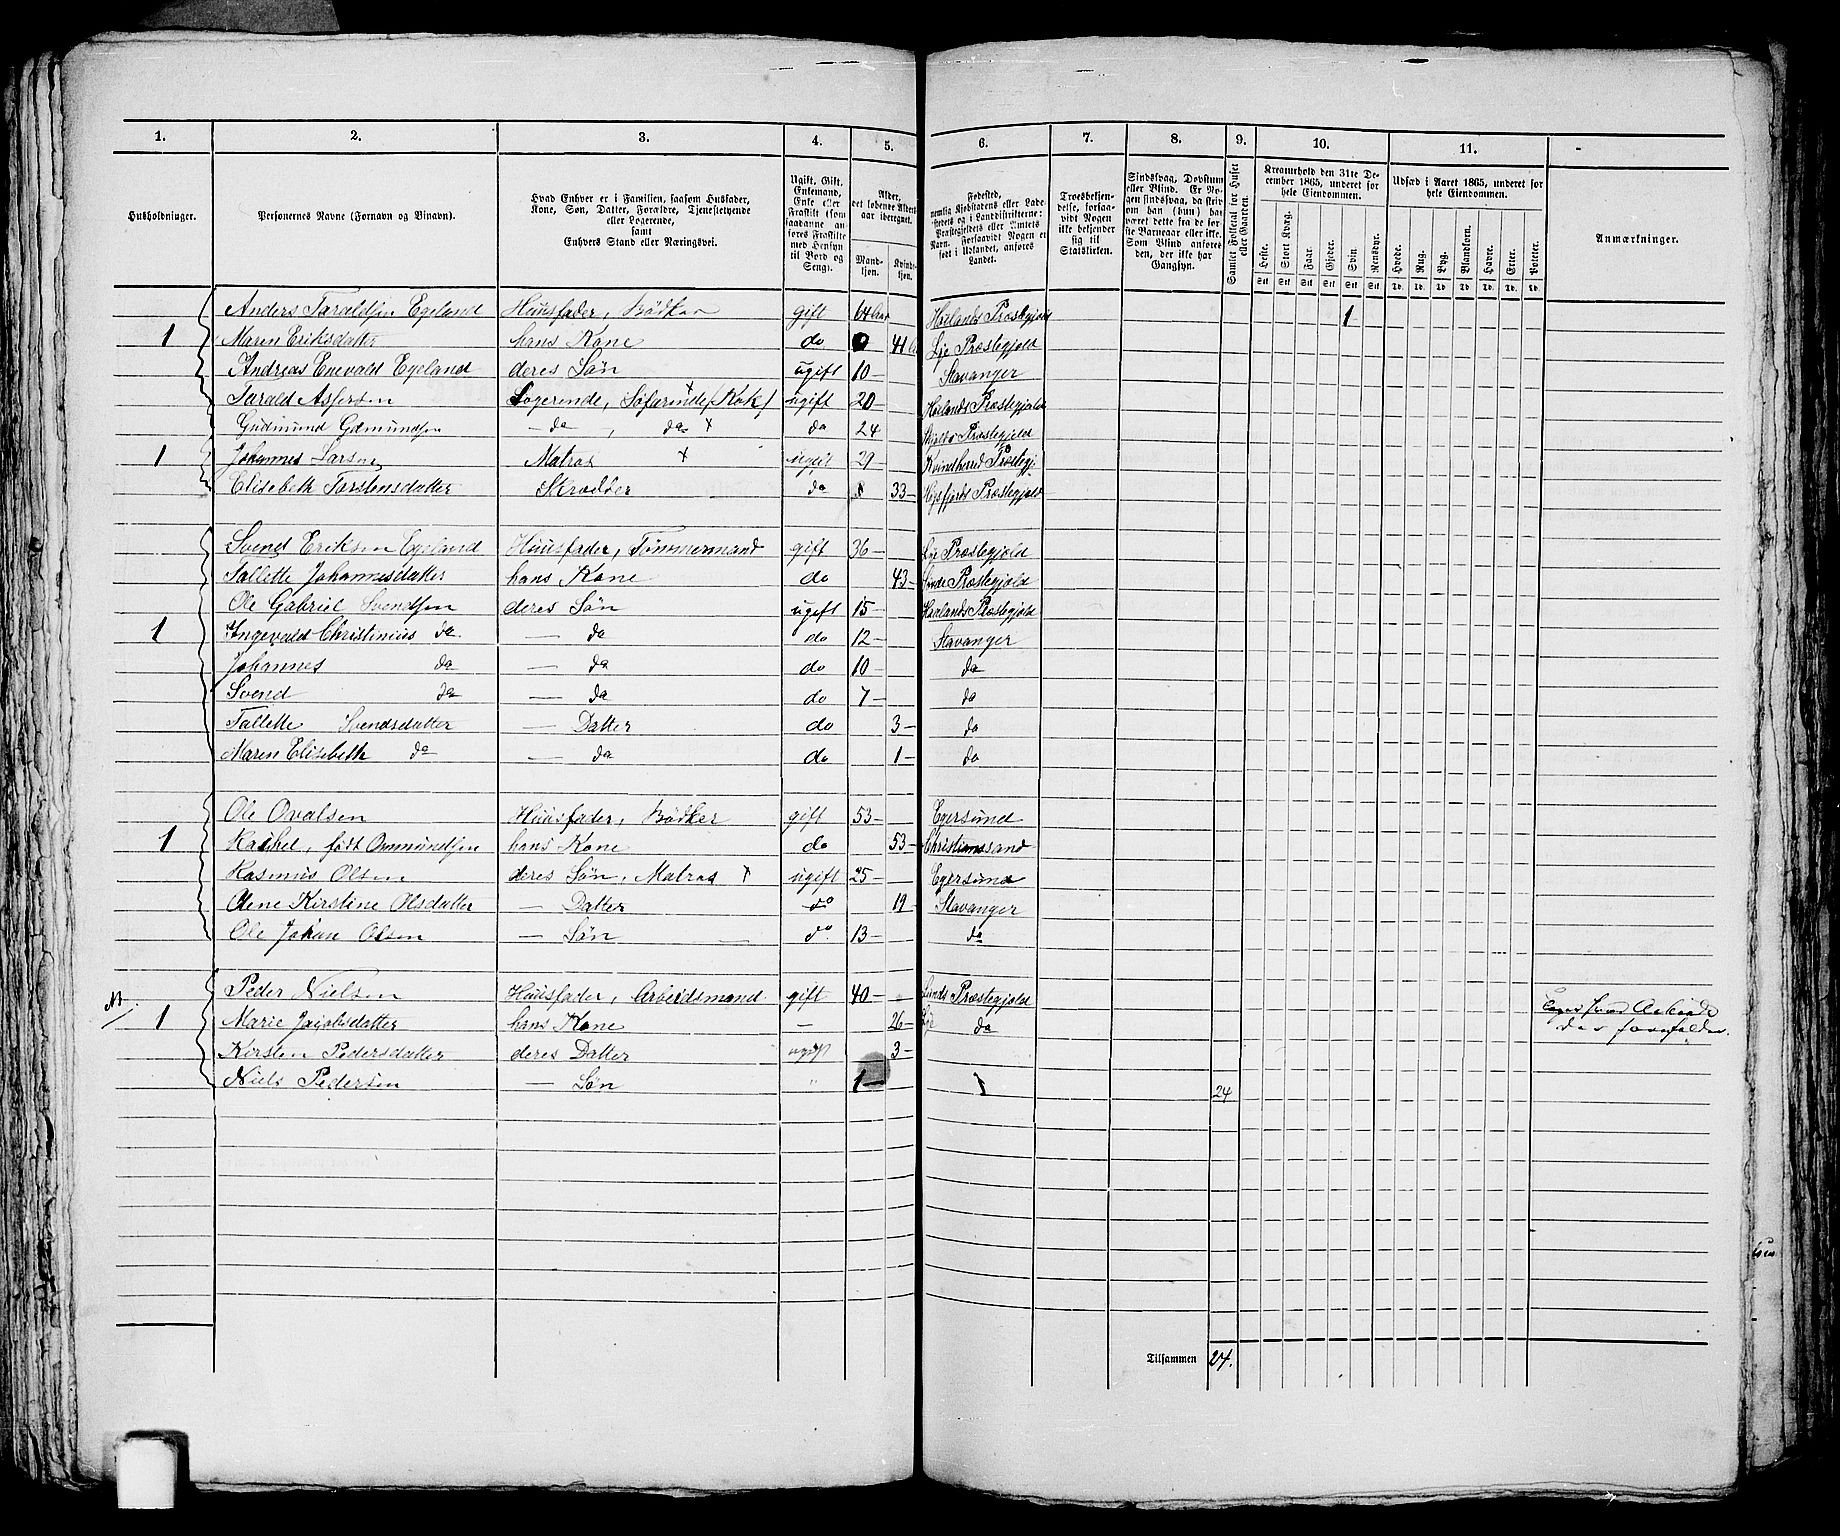 1. 2. 3. 4. 5. 6. 7. 8. 9. 10. 11.
Husholdninger. Personernes Navne (Fornavn og Binavn). Hvad Enhver er i Familien, saasom Husfader, Kone, Søn, Datter, Forældre, Tjenestetyende eller Logerende, samt Enhvers Stand eller Næringsvei. Ugift, Gift, Enkemand, Enke eller Fraskilt (som saadanne anføres Fraskilte med Hensyn til Bord og Seng). Alder, det løbende Aldersaar iberegnet. Mandkjøn. Kvindekjøn. Fødested, nemlig Kjøbstadens eller Ladestedets og i Landdistrikterne: Præstegjeldets eller Amtets Navn. Forsaavidt Nogen er født i Udlandet, anføres Landet. Troesbekjendelse, forsaavidt Nogen ikke bekjender sig til Statskirken. Sindssvag, Døvstum eller Blind. Er Nogen sindssvag, da skrives om han (hun) har været dette fra de første Barneaar eller ikke. Som Blind anføres den, der ikke har Gangsyn. Samlet Folketal for Huset eller Gaarden. Kreaturhold den 31te December 1865, underet for hele Eiendommen. Heste. Stort Kvæg. Faar. Gjeder. Svin. Rensdyr. Udsæd i Aaret 1865, underet for hele Eiendommen. Hvede. Rug. Byg. Blandkorn. Havre. Erter. Poteter. Anmærkninger.
Anders Taraldsen Egeland Huusfader, Bödker gift 64 Aar Høilands Præstegjeld 1
1 Maren Eriksdatter hans Kone do 41 Lye Præstegjeld
Andreas Enevald Egeland deres Søn ugift 10 Stavanger
Tarald Aslersen Logerende, Søfarende /Kok/ ugift 20 – Høilands Præstegjeld
Gudmund Gdmundsen – do, do + do 24 Præstegjeld
1 Johannes Larsen Matros + ugift 29 – Kvindherred Præstegj.
Elisebeth Torstensdatter Skrædder do 33 – Høgsfjords Præstegjeld
Svend Eriksen Egeland Huusfader, Tømmermand gift 36 – Lye Præstegjeld
Tallette Johannesdatter hans Kone do 43 – Præstegjeld
Ole Gabriel Svendsen deres Søn ugift 15 – Høilands Præstegjeld
1 Ingevald Christinius do – do do 12 – Stavanger
Johannes do – do do 10 – do
Svend do – do do 7 – do
Tallette Svendsdatter – Datter do 3 – do
Maren Elisebeth do – do do 1 – do
Ole Ovalsen Huusfader, Bödker gift 53 – Egersund
1 Rachel, født Ommundsen hans Kone do 53 – Christianssand
Rasmus Olsen deres Søn, Matros + ugift 25 – Egersund
Olene Kirstine Olsdatter – Datter do 19 – Stavanger
Ole Johan Olsen – Søn – do 13 – do
Peder Nielsen Huusfader, Arbeidsmand gift 40 – Lunds Præstegjeld
1 Marie Jacobsdatter hans Kone – 26 – Lye do
Kirsten Pedersdatter deres Datter ugift 3 –
Niels Pedersen – Søn " 1 – 24
Tilsammen 24.